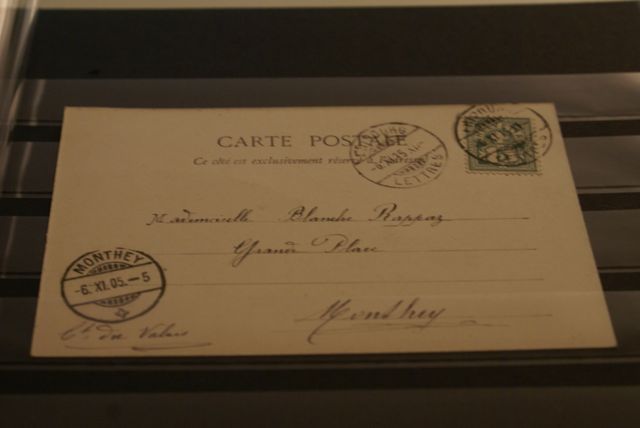 CARTE POSTALE
Ce côté est exclusivement réservé à l'adresse
FRIBOURG
-6.XI.05.XI-
LETTRES
Mademoiselle Blanche Rappaz
Grande Place
Monthey
MONTHEY
-6.XI.05.-5
Ct. du Valais